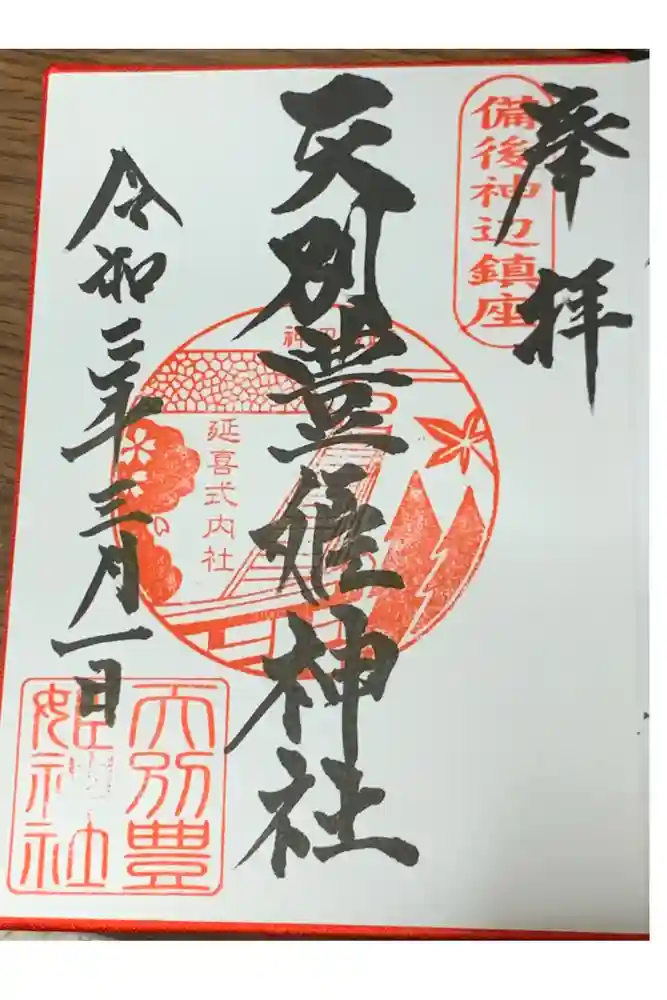 奉拝
備後神辺鎮座
天別豊姫神社
延喜式内社
令和二年三月一日
天別豊
姫神社